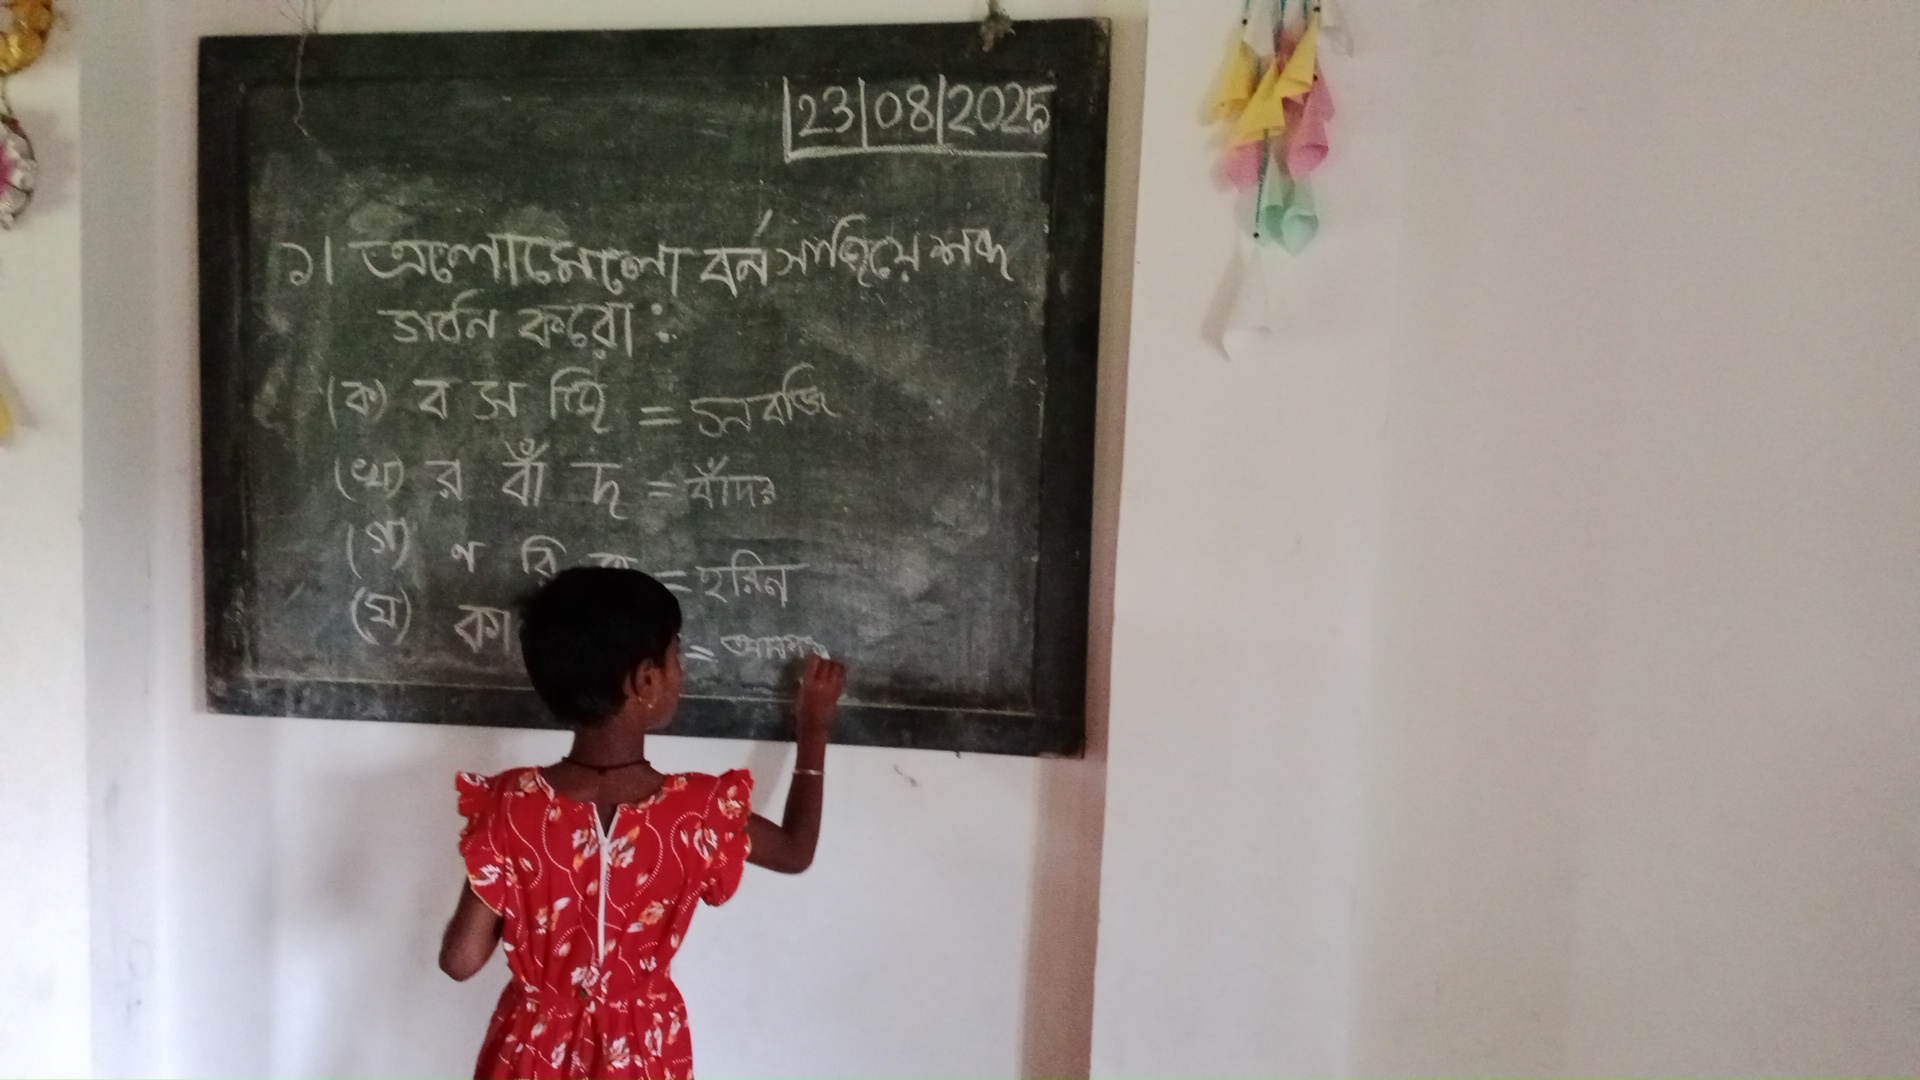 23/08/2025
১। এলোমেলো বর্ন সাজিয়ে শব্দ
গঠন করো:
(ক) ব স জি = সবজি
(খ) র বাঁ দ = বাঁদর
(গ) ণ রি = হরিন
(ঘ) কা =